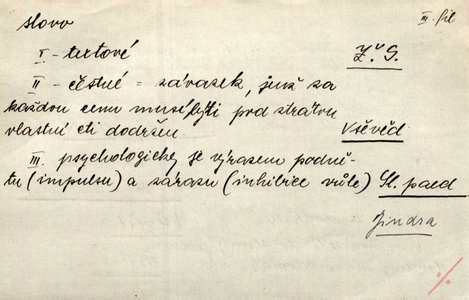 slovo
III-fil
I - textové
Z.G.
II - čestné = závazek, jenž za
každou cenu musí býti pod ztrátou
vlastní cti dodržen.
Vševěd
III. psychologicky je výrazem podně-
tu (impulsu) a zárazu (inhibice vůle) Sl. paed
Jindra